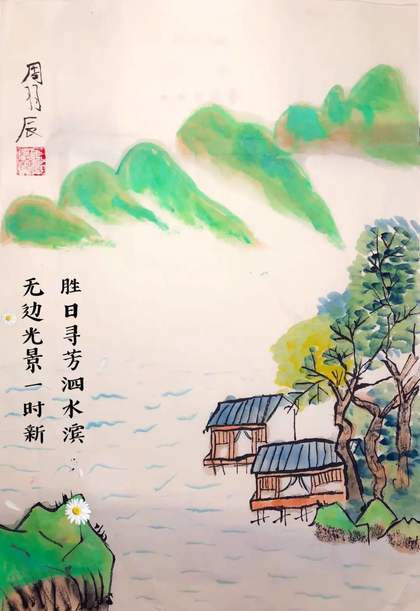 周羽辰
胜日寻芳泗水滨
无边光景一时新